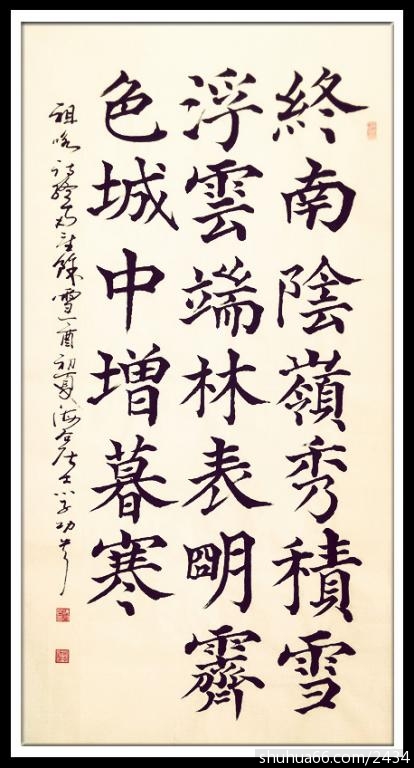 終南陰嶺秀積雪
浮雲端林表明霽
色城中增暮寒
祖咏詩終南望餘雪 酉初夏海 居士 功書
shuhua66.com/2434